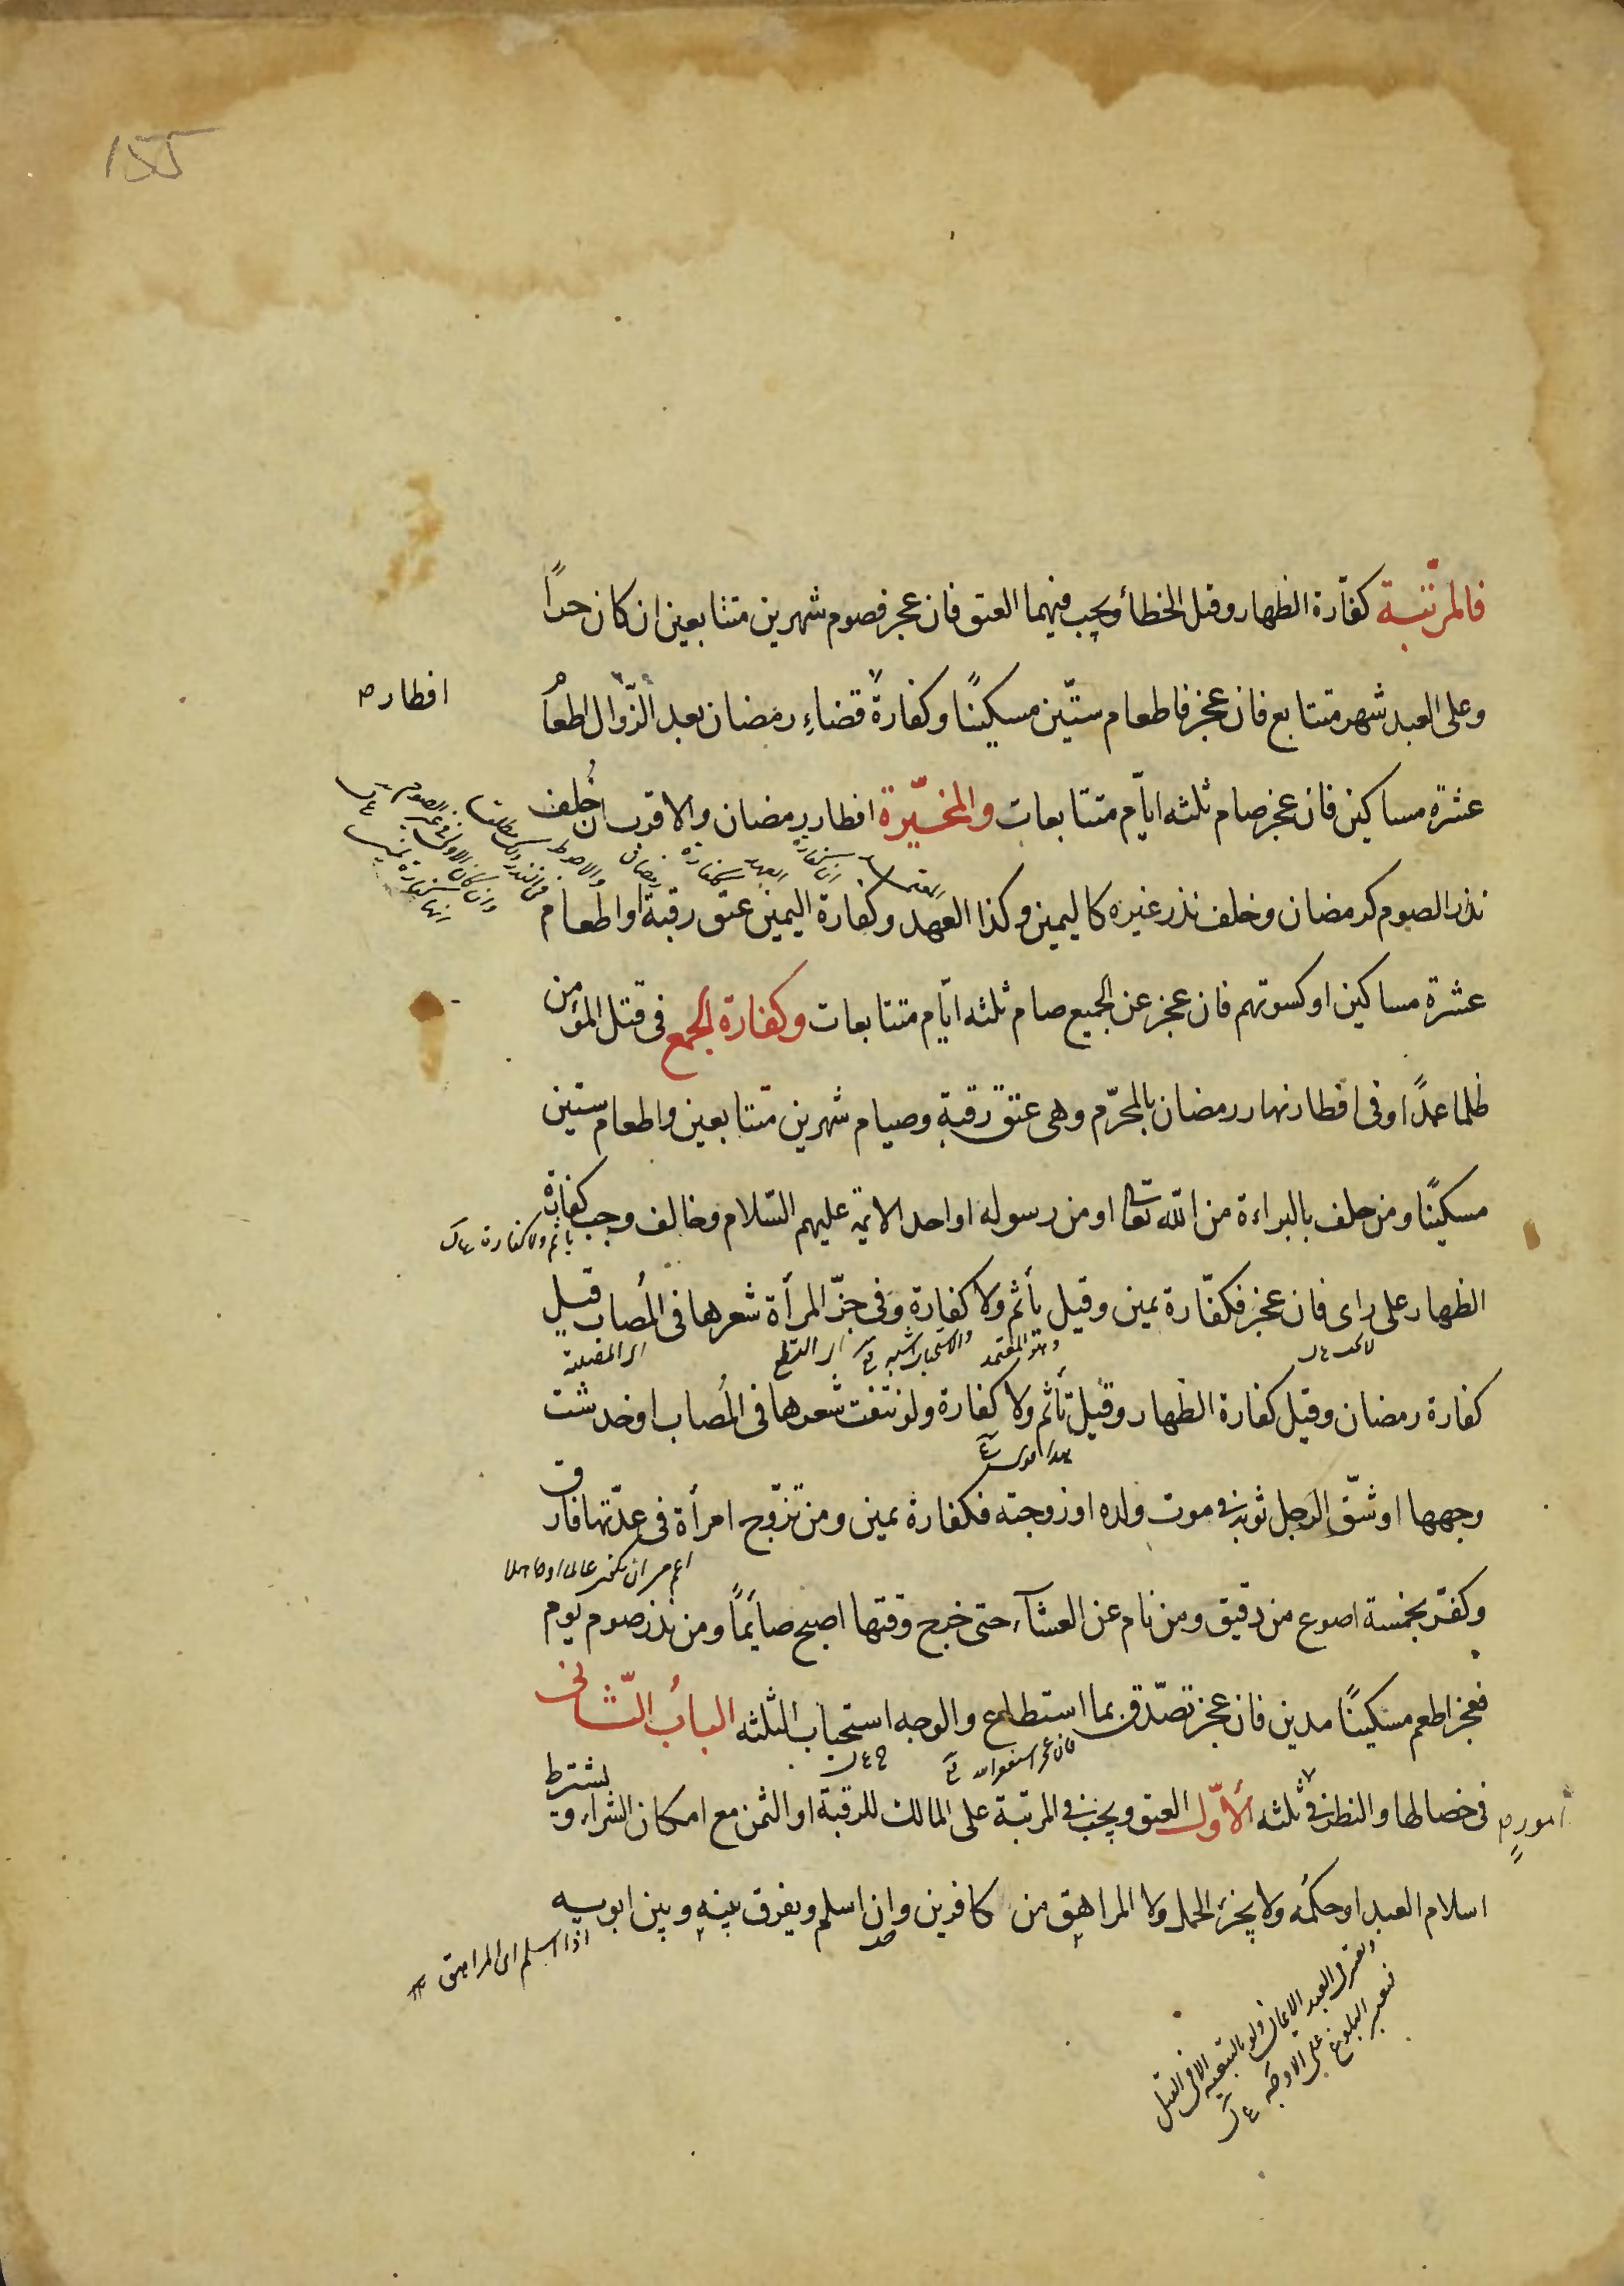 155
فالمرتّبة كفّارة الظهار وقتل الخطأ ويجب فيهما العتق فان عجز فصوم شهرين متتابعين ان كان حرّاً
وعلى العبد شهر متتابع فان عجز فاطعام ستّين مسكينًا وكفارة قضاءِ رمضان بعد الزّوال اطعام
افطار ص
عشرة مساكين فان عجز صام ثلثه ايّام متتابعات والمخيّرة افطار رمضان والاقرب ان خُلف
نذر الصوم كرمضان وخلف نذر غيره كاليمين وكذا العهد وكفارة اليمين عتق رقبة او اطعام
عشرة مساكين او كسوتهم فان عجز عن الجميع صام ثلثه ايّام متتابعات وكفارة الجمع فى قتل المؤمن
ظلما عمدًا وفى افطار نهار رمضان بالمحرّم وهى عتق رقبةٍ وصيام شهرين متتابعين واطعام ستين
مسكينًا ومن حلف بالبراءة من اللّه تعا او من رسوله او احد الايمّه عليهم السّلام وخالف وجب كفارة
ياثم ولا كفارة
الظهار على راى فان عجز فكفّارة يمين وقيل يأثم ولا كفارة وفى جزّ المرأة شعرها فى المُصاب قيل
وهو المعتمد
اى القطع
كفارة رمضان وقيل كفارة الظهار وقيل تأثم ولا كفارة ولو نتفت شعرها فى المُصاب او خدشت
وجهها او شقّ الرجل ثوبه فى موت ولده او زوجته فكفارة يمين ومن تزوّج امرأة فى عدّتها فارق
اعم من ان يكون عالما او جاهلا
وكفّر بخمسة اصوع من دقيق ومن نام عن العشآء حتى خرج وقتها اصبح صايمًا ومن نذر صوم يوم
فعجز اطعم مسكينًا مدين فان عجز تصدّق بما استطاع والوجه استحباب الثلثه الباب الثّانى
فى خصالها والنظر فى ثلثه الاوّل العتق ويجب فى المرتبة على المالك للرقبة او الثمن مع امكان الشراء ويشترط
امور ص
اسلام العبد او حكمُه ولا يجزئ الحمل ولا المراهق من كافرين وان اسلم ويفرق بينه وبين ابويه
اذا اسلم اى المراهق
ولو بالتبعية الا فى القتل
فيعتبر البلوغ على الاوجه